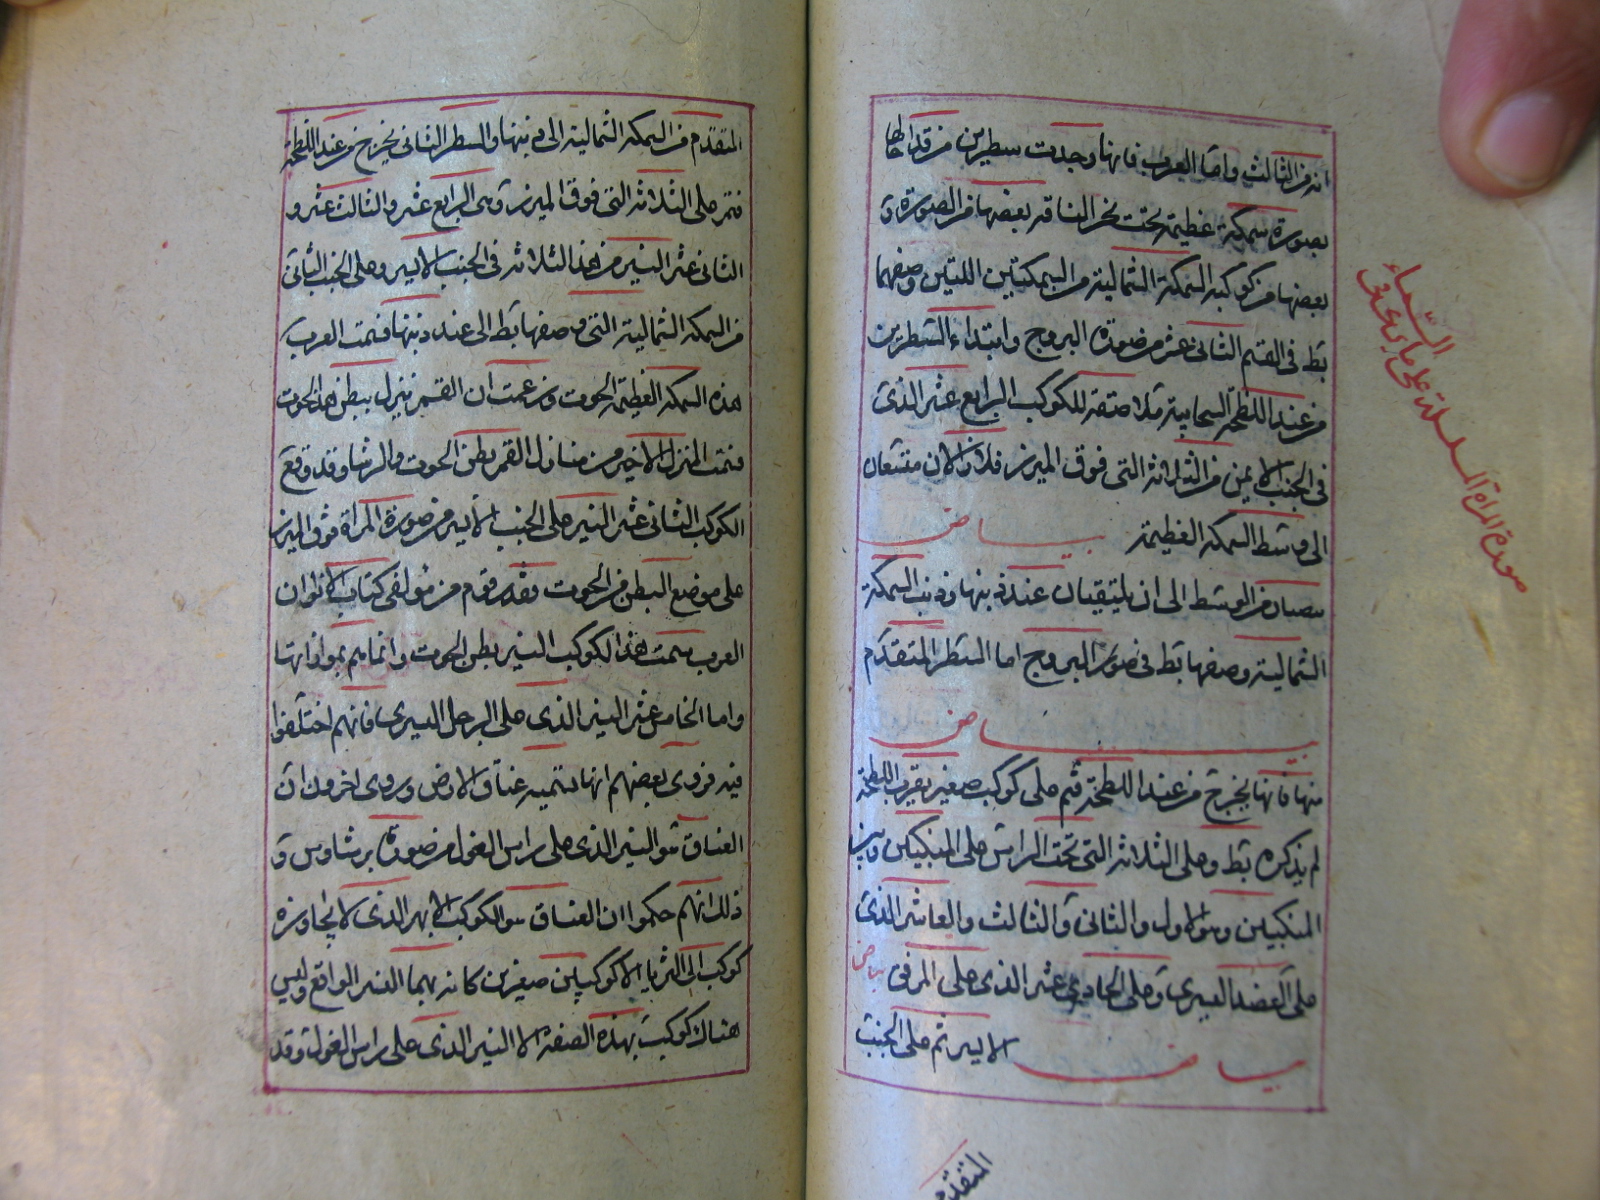 انه من الثالث واما العرب فانها وجدت سطرين من قد احاطا
بصورة سمكة عظيمة تحت نحر الناقة بعضها من الصورة و
بعضها من كوكبة السمكة الشمالية من السمكتين اللتين وصفهما
بط في القسم الثاني عشر من صورة البروج وابتداء السطرين
من عند اللطخة السحابية ملاصقة للكوكب الرابع عشر الذي
في الجنب الايمن من الثلاثة التي فوق الميزر فلا يزالان متسعان
الى وسط السمكة العظيمة بياض
من الوسط الى ان يلتقيان عند ذنبها وذنب السمكة
الشمالية وصفها بط في صور البروج اما السطر المتقدم
بياض
منها فانها يخرج من عند اللطخة فتمر على كوكب صغير بقرب اللطخة
لم يذكره بط وعلى الثلاثة التي تحت الراس على المنكبين وبين
المنكبين وهو الاول والثاني والثالث والعاشر الذي
على العضد اليسرى وعلى الحادي عشر الذي على المرفق بياض
الايسر ثم على الجنب بياض
المتقدم
صورة المراة المسلسلة على ما يرى في
السماء
المتقدم من السمكة الشمالية الى ذنبها والسطر الثاني يخرج من عند اللطخة
فتمر على الثلاثة التي فوق الميزر وهي الرابع عشر والثالث عشر و
الثاني عشر النير من هذا الثلاثة في الجنب الايسر وعلى الجنب الثاني
من السمكة الشمالية التي وصفها بط الى عند ذنبها فسمت العرب
هذه السمكة العظيمة الحوت وزعمت ان القمر ينزل ببطن هذا الحوت
فسمت المنزل الاخير من منازل القمر بطن الحوت والرشا وقد وقع
الكوكب الثاني عشر النير على الجنب الايسر من صورة المراة فوق الميزر
على موضع البطن من الحوت وقد قوم من مؤلفي كتاب الانوا ان
العرب سمت هذا الكوكب النير بطن الحوت وانما بموازاتها
واما الخامس عشر النير الذي على الرجل اليسرى فانهم اختلفوا
فيه فروى بعضهم انها تسميه عناق الارض وروى اخرون ان
العناق هو النير الذي على راس الغول من صورة برشاوس و
ذلك انهم حكموا ان العناق هو الكوكب الابهر الذي لا يجاوزه
كوكب الى الثريا الا كوكبين صغيرين كانه بهما النسر الواقع وليس
هناك كوكب بهذه الصفة الا النير الذي على راس الغول وقد